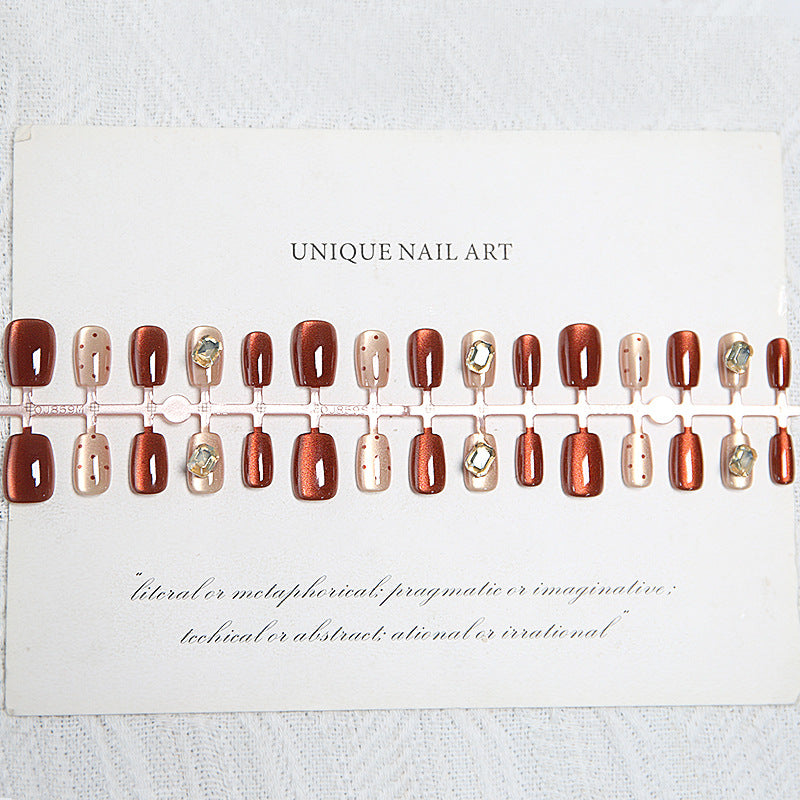 UNIQUE NAIL ART
OJ859M
"literal or metaphorical; pragmatic or imaginative;
tcchical or abstract; ational or irrational"